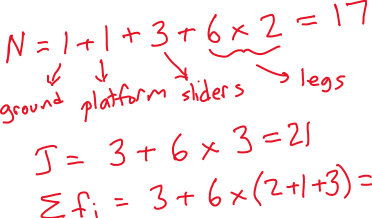 N = 1 + 1 + 3 + 6 × 2 = 17
ground platform sliders legs
J = 3 + 6 × 3 = 21
Σfi = 3 + 6 × (2+1+3) =